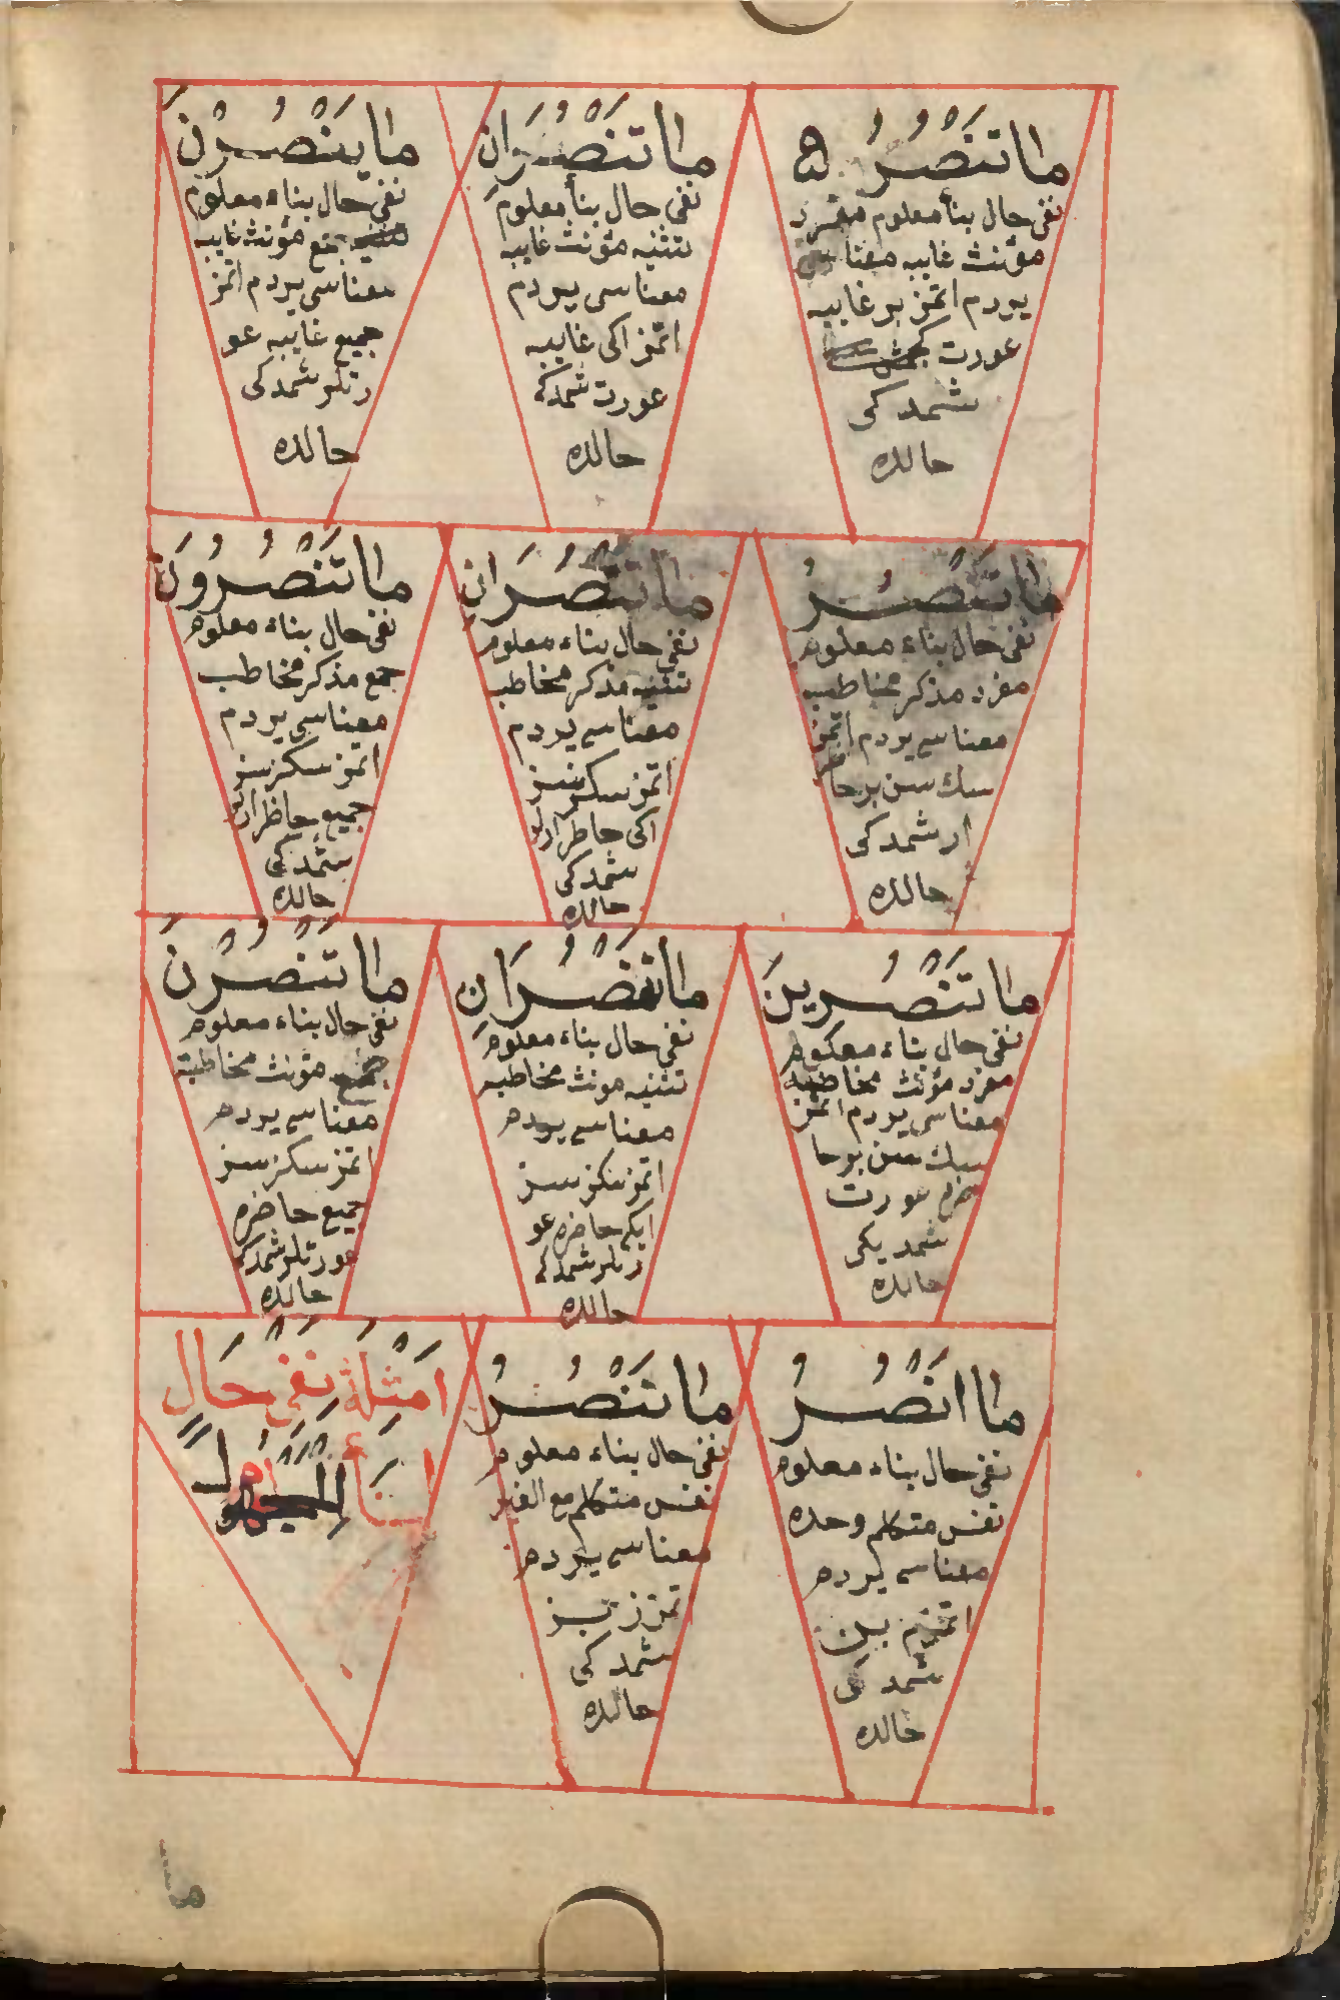 ما تَنْصُرُ ۵
نفى حال بناء معلوم مفرد
مؤنث غايبه معناسى
يردم اتمز بر غايبه
عورت
شمدكى
حالده
ما تَنْصُرَانِ
نفى حال بناء معلوم
تثنيه مؤنث غايبه
معناسى يردم
اتمز اكى غايبه
عورت شمدكى
حالده
ما يَنْصُرْنَ
نفى حال بناء معلوم
جمع مؤنث غايبه
معناسى يردم اتمز
جميع غايبه عو
رتلر شمدكى
حالده
ما تَنْصُرُ
نفى حال بناء معلوم
مفرد مذكر مخاطب
معناسى يردم اتمز
سك سن بر حاظر
ار شمدكى
حالده
ما تَنْصُرَانِ
نفى حال بناء معلوم
تثنيه مذكر مخاطب
معناسى يردم
اتمز سكز سز
اكى حاظر ارلر
شمدكى
حالده
ما تَنْصُرُونَ
نفى حال بناء معلوم
جمع مذكر مخاطب
معناسى يردم
اتمز سكز سز
جميع حاظر ارلر
شمدكى
حالده
ما تَنْصُرِينَ
نفى حال بناء معلوم
مفرد مؤنث مخاطبه
معناسى يردم اتمز
سك سن بر حا
ضره عورت
شمديكى
حالده
ما تَنْصُرَانِ
نفى حال بناء معلوم
تثنيه مونث مخاطبه
معناسى يردم
اتمز سكز سز
ايكى حاضره عو
رتلر شمدكى
حالده
ما تَنْصُرْنَ
نفى حال بناء معلوم
جمع مؤنث مخاطبة
معناسى يردم
اتمز سكز سز
جميع حاضره
عورتلر شمدكى
حالده
ما اَنْصُرُ
نفى حال بناء معلوم
نفس متكلم وحده
معناسى يردم
اتمزم بن
شمدكى
حالده
ما نَنْصُرُ
نفى حال بناء معلوم
نفس متكلم مع الغير
معناسى يردم
تمززبز
شمدكى
حالده
اَمْثِلَةُ نَفْىِ حَالٍ
بناء
ما